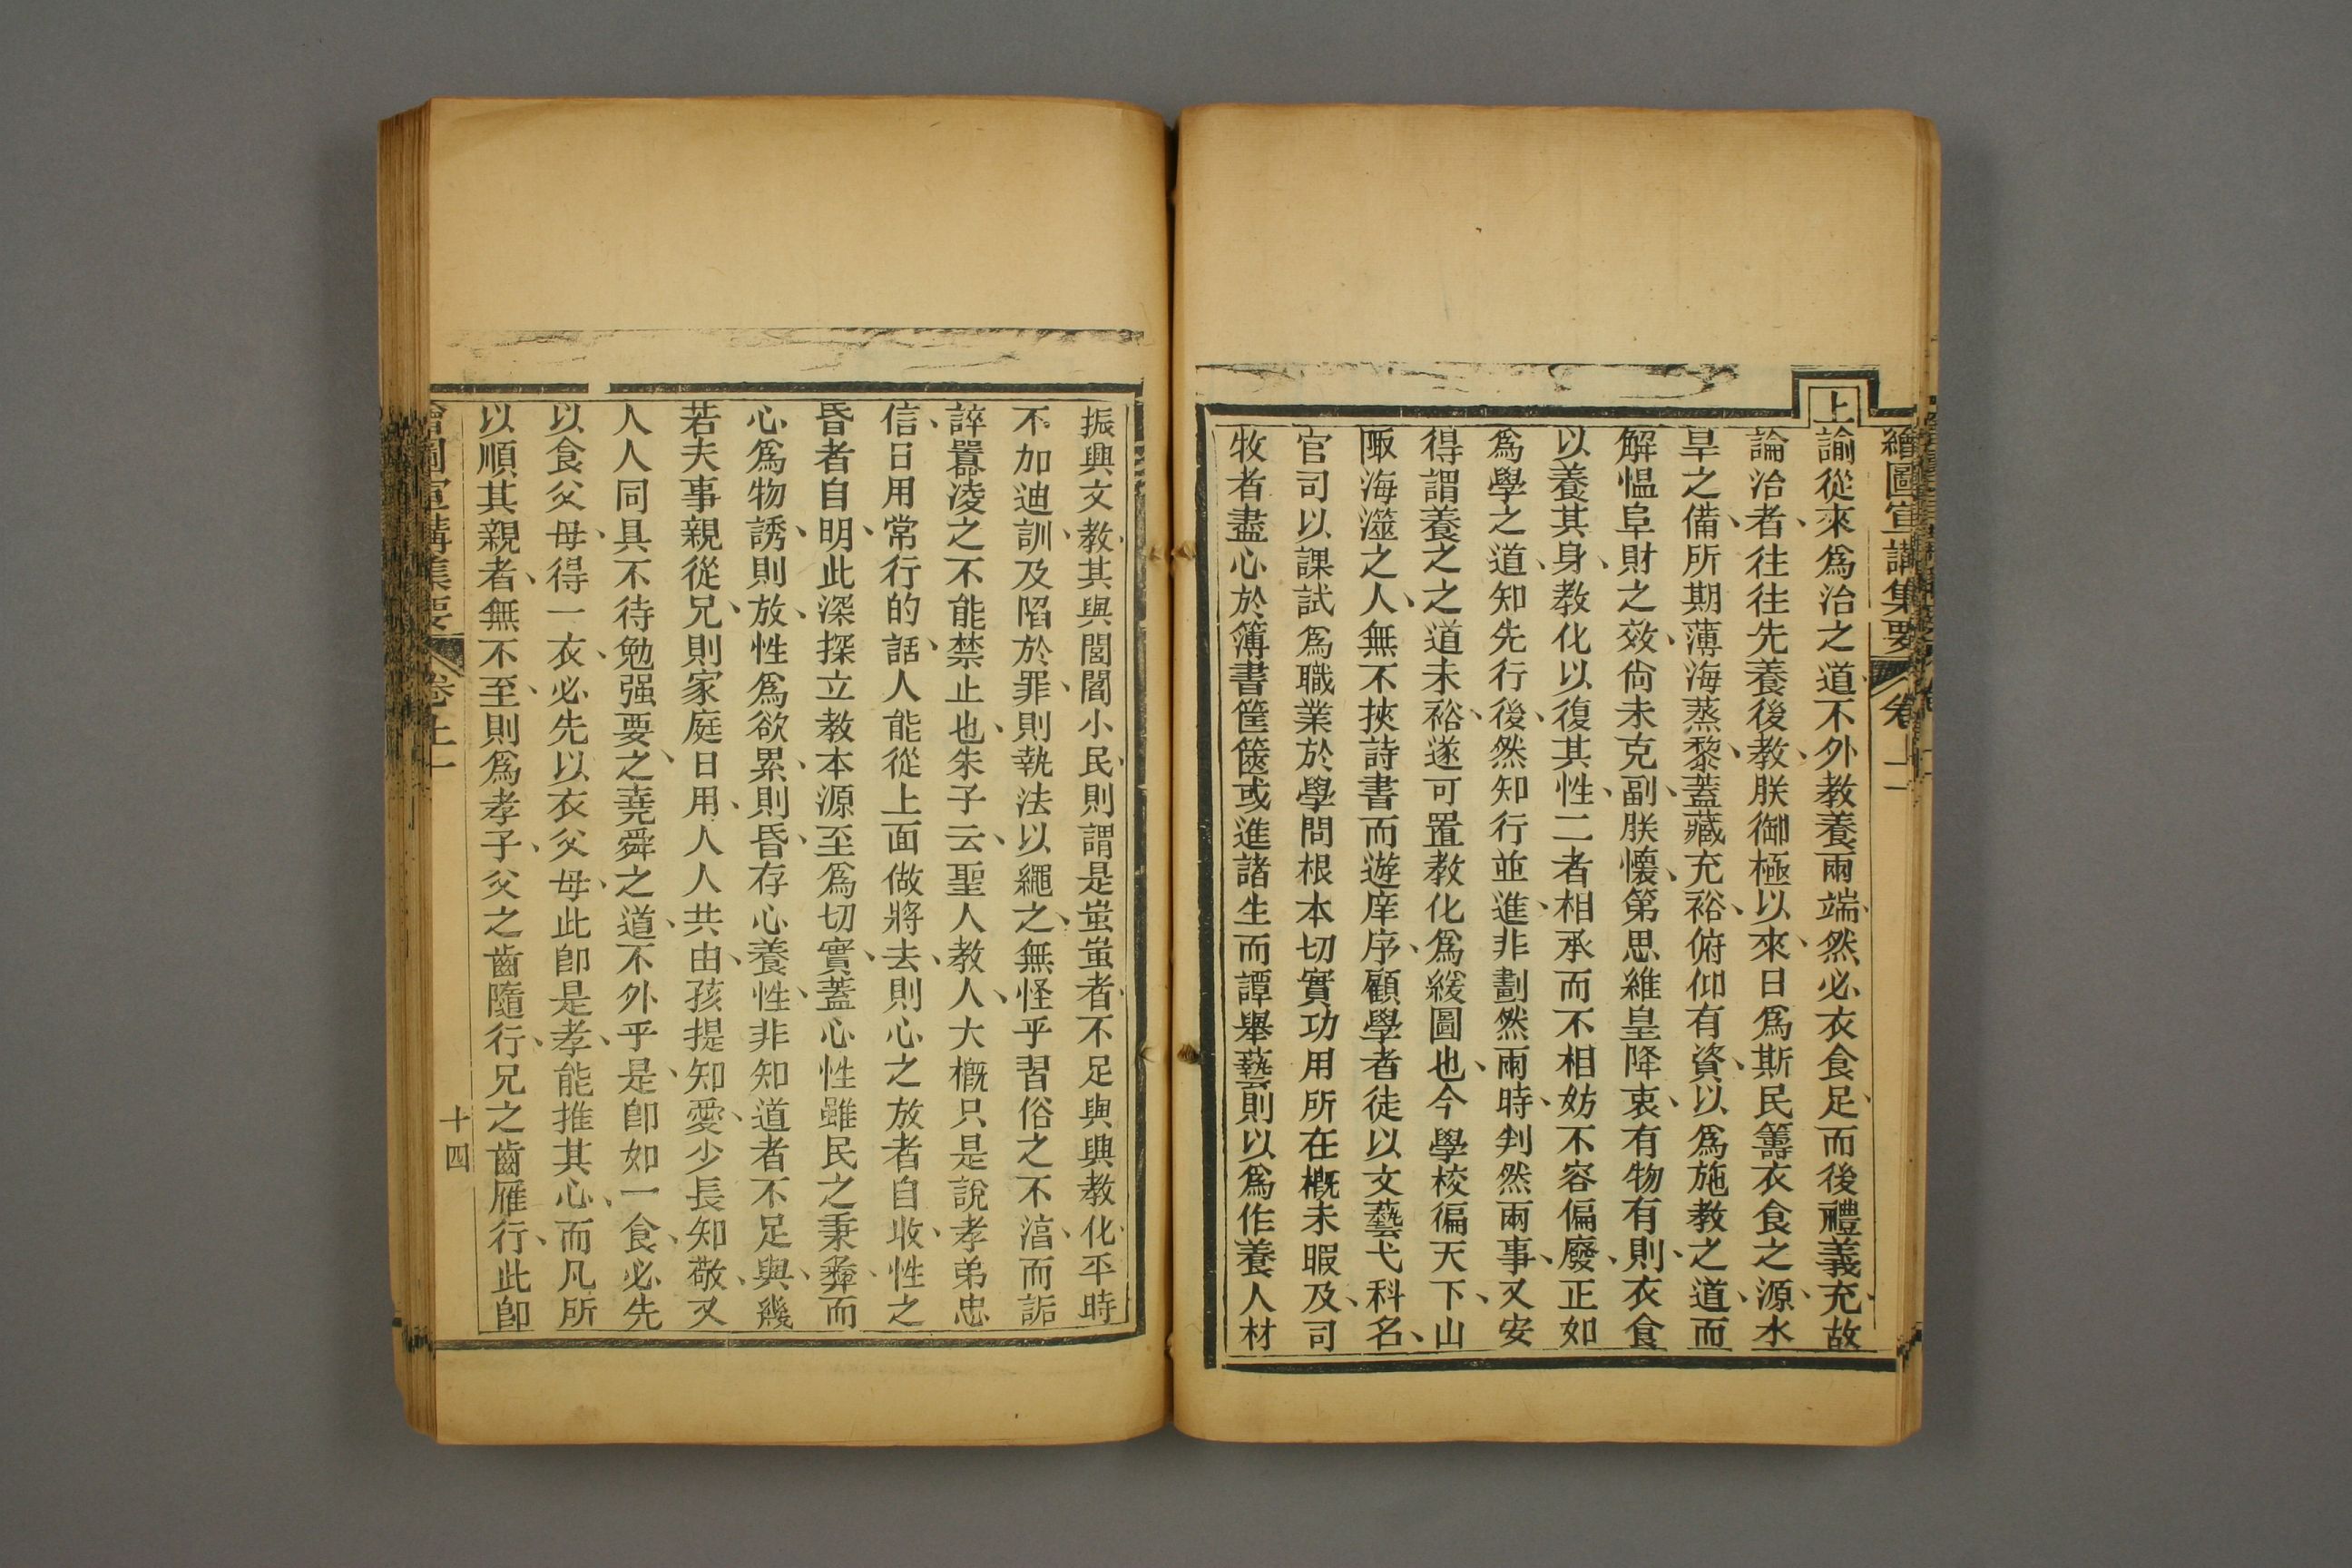 繪圖宣講集要 卷一
上諭從來爲治之道不外教養兩端然必衣食足而後禮義充故
論治者往往先養後教朕御極以來日爲斯民籌衣食之源水
旱之備所期薄海蒸黎蓋藏充裕俯仰有資以爲施教之道而
解慍阜財之效尙未克副朕懷第思維皇降衷有物有則衣食
以養其身教化以復其性二者相承而不相妨不容偏廢正如
爲學之道知先行後然知行並進非劃然兩時判然兩事又安
得謂養之之道未裕遂可置教化爲緩圖也今學校徧天下山
陬海澨之人無不挾詩書而遊庠序顧學者徒以文藝弋科名
官司以課試爲職業於學問根本切實功用所在槪未暇及司
牧者盡心於簿書筐篋或進諸生而譚舉藝則以爲作養人材
振興文教其與閭閻小民則謂是蚩蚩者不足與興教化平時
不加迪訓及陷於罪則執法以繩之無怪乎習俗之不淳而詬
誶囂凌之不能禁止也朱子云聖人教人大槪只是說孝弟忠
信日用常行的話人能從上面做將去則心之放者自收性之
昏者自明此深探立教本源至爲切實蓋心性雖民之秉彝而
心爲物誘則放性爲欲累則昏存心養性非知道者不足與幾
若夫事親從兄則家庭日用人人共由孩提知愛少長知敬又
人人同具不待勉强要之堯舜之道不外乎是卽如一食必先
以食父母得一衣必先以衣父母此卽是孝能推其心而凡所
以順其親者無不至則爲孝子父之齒隨行兄之齒雁行此卽
繪圖宣講集要 卷一 十四